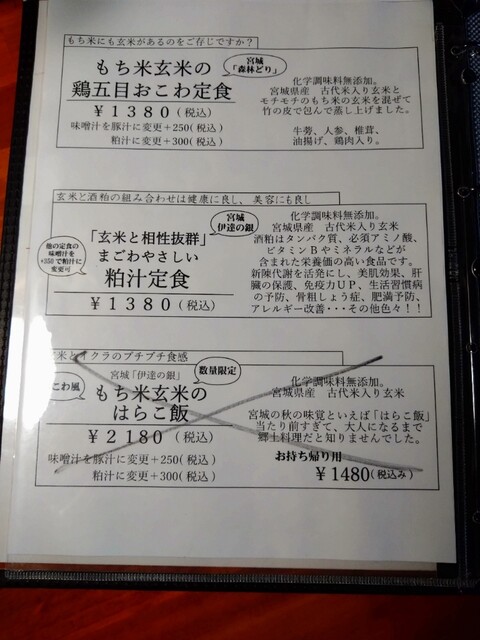 もち米にも玄米があるのをご存じですか？
もち米玄米の
鶏五目おこわ定食
宮城
「森林どり」
￥１３８０（税込）
味噌汁を豚汁に変更+250（税込）
粕汁に変更+300（税込）
化学調味料無添加。
宮城県産　古代米入り玄米と
モチモチのもち米の玄米を混ぜて
竹の皮で包んで蒸し上げました。
牛蒡、人参、椎茸、
油揚げ、鶏肉入り。
玄米と酒粕の組み合わせは健康に良し、美容にも良し
他の定食の
味噌汁を
+350で粕汁に
変更可
「玄米と相性抜群」
まごわやさしい
粕汁定食
宮城
伊達の銀
￥１３８０（税込）
化学調味料無添加。
宮城県産　古代米入り玄米
酒粕はタンパク質、必須アミノ酸、
ビタミンＢやミネラルなどが
含まれた栄養価の高い食品です。
新陳代謝を活発にし、美肌効果、肝
臓の保護、免疫力ＵＰ、生活習慣病
の予防、骨粗しょう症、肥満予防、
アレルギー改善・・・その他色々！！
米とイクラのプチプチ食感
こわ風
宮城「伊達の銀」
数量限定
もち米玄米の
はらこ飯
￥２１８０（税込）
味噌汁を豚汁に変更+250（税込）
粕汁に変更+300（税込）
化学調味料無添加。
宮城県産　古代米入り玄米
宮城の秋の味覚といえば「はらこ飯」
当たり前すぎて、大人になるまで
郷土料理だと知りませんでした。
お持ち帰り用
￥1480（税込み）